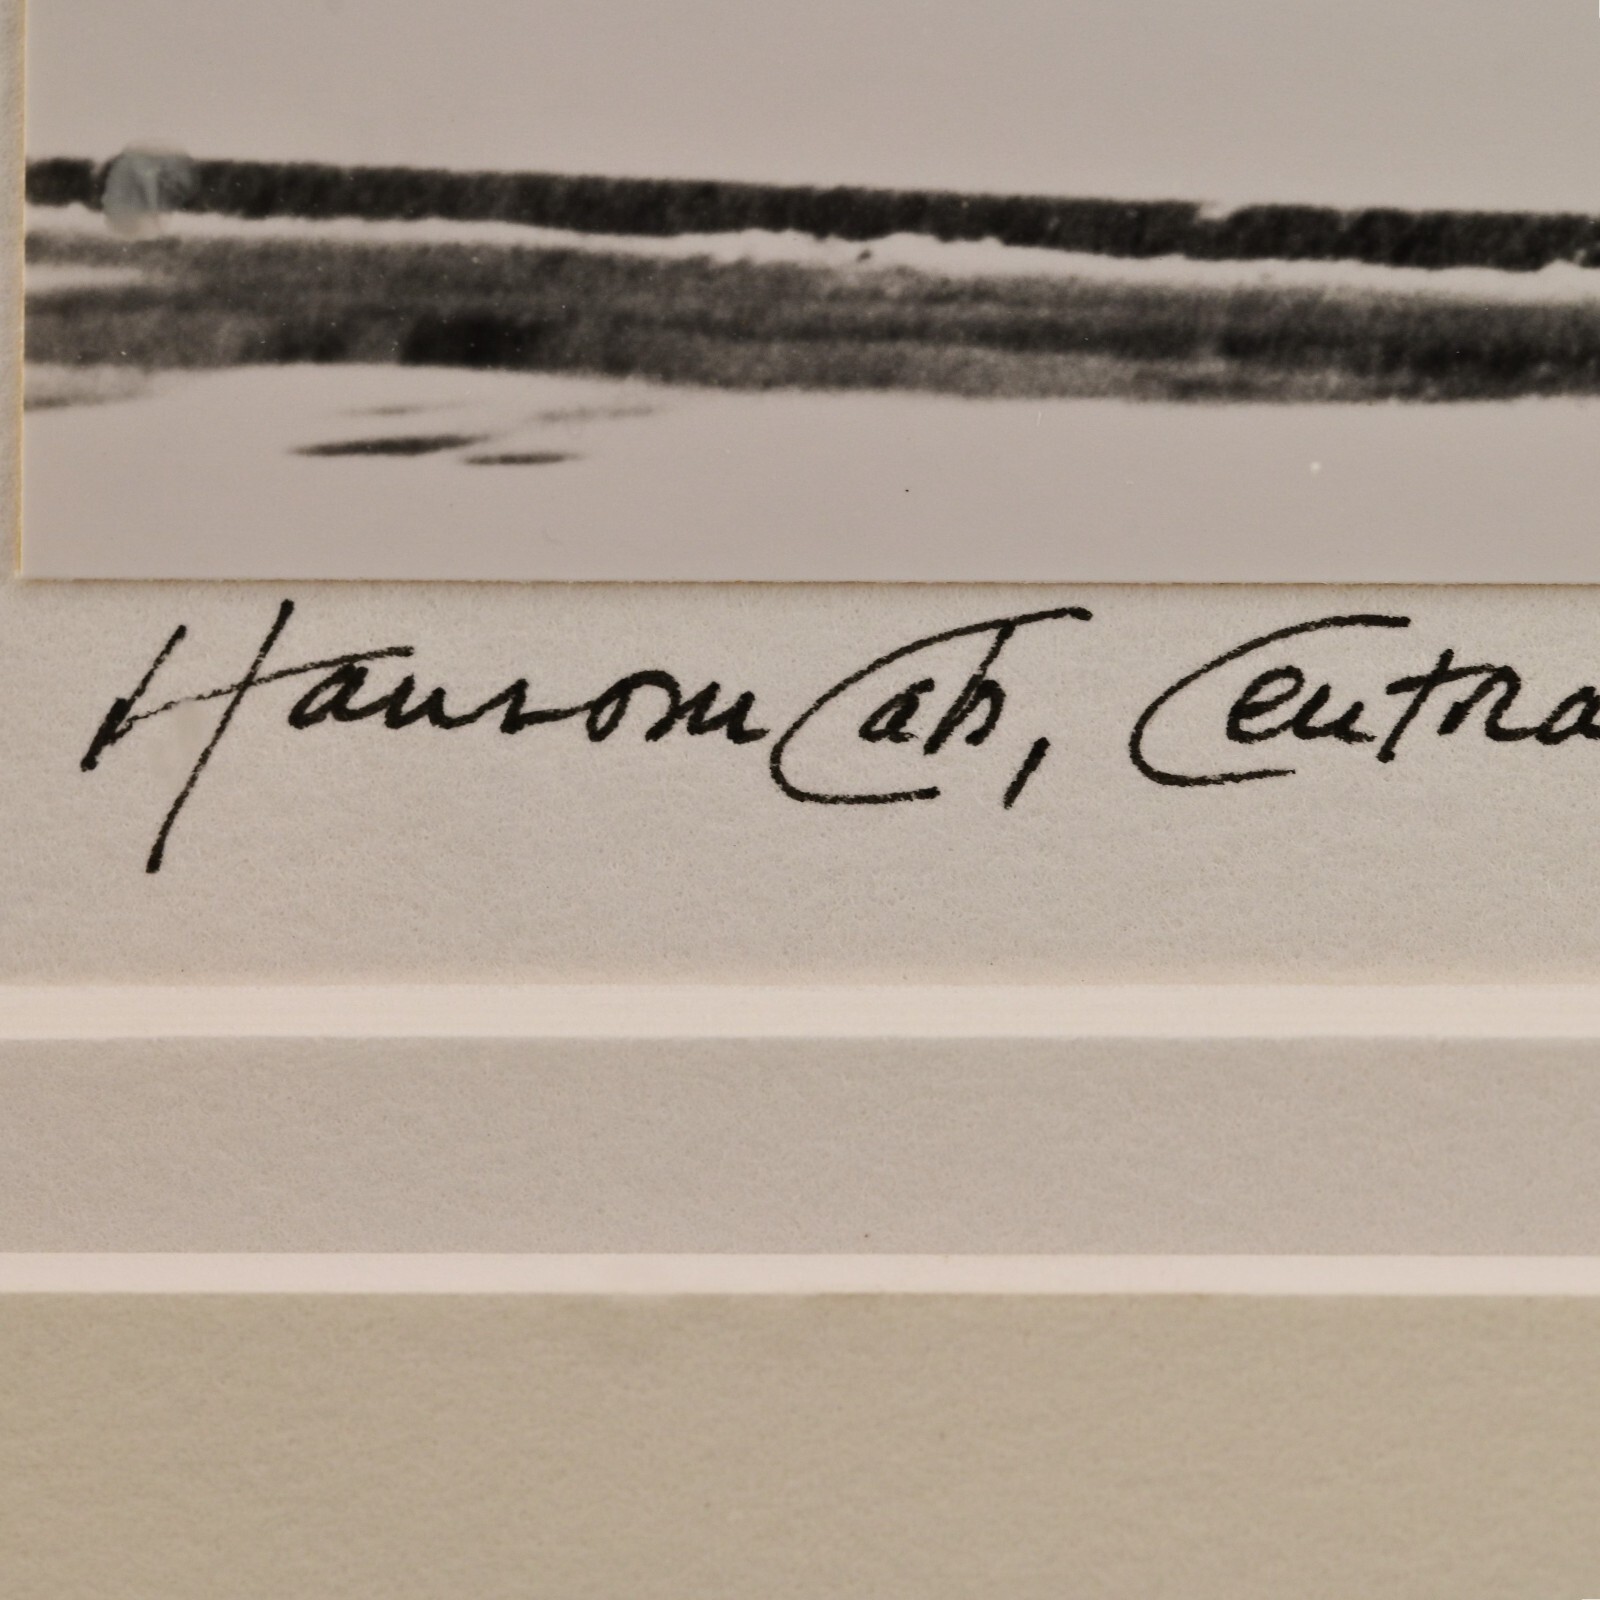 Hansom Cab, Centra